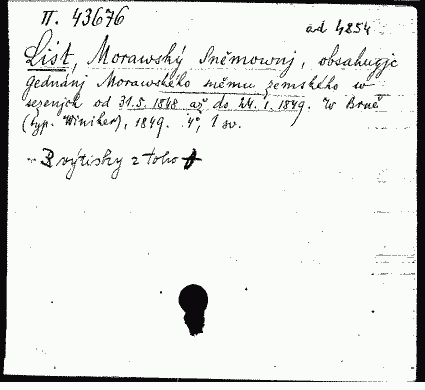 II. 43676
ad 4854
List, Morawský Sněmownj, obsahugjc
gednánj Morawského sněmu zemského w
sezenjch od 31.5.1848 až do 24.1.1849. W Brně
(typ. Winiker), 1849. 4°, 1 sv.
výtisky z toho